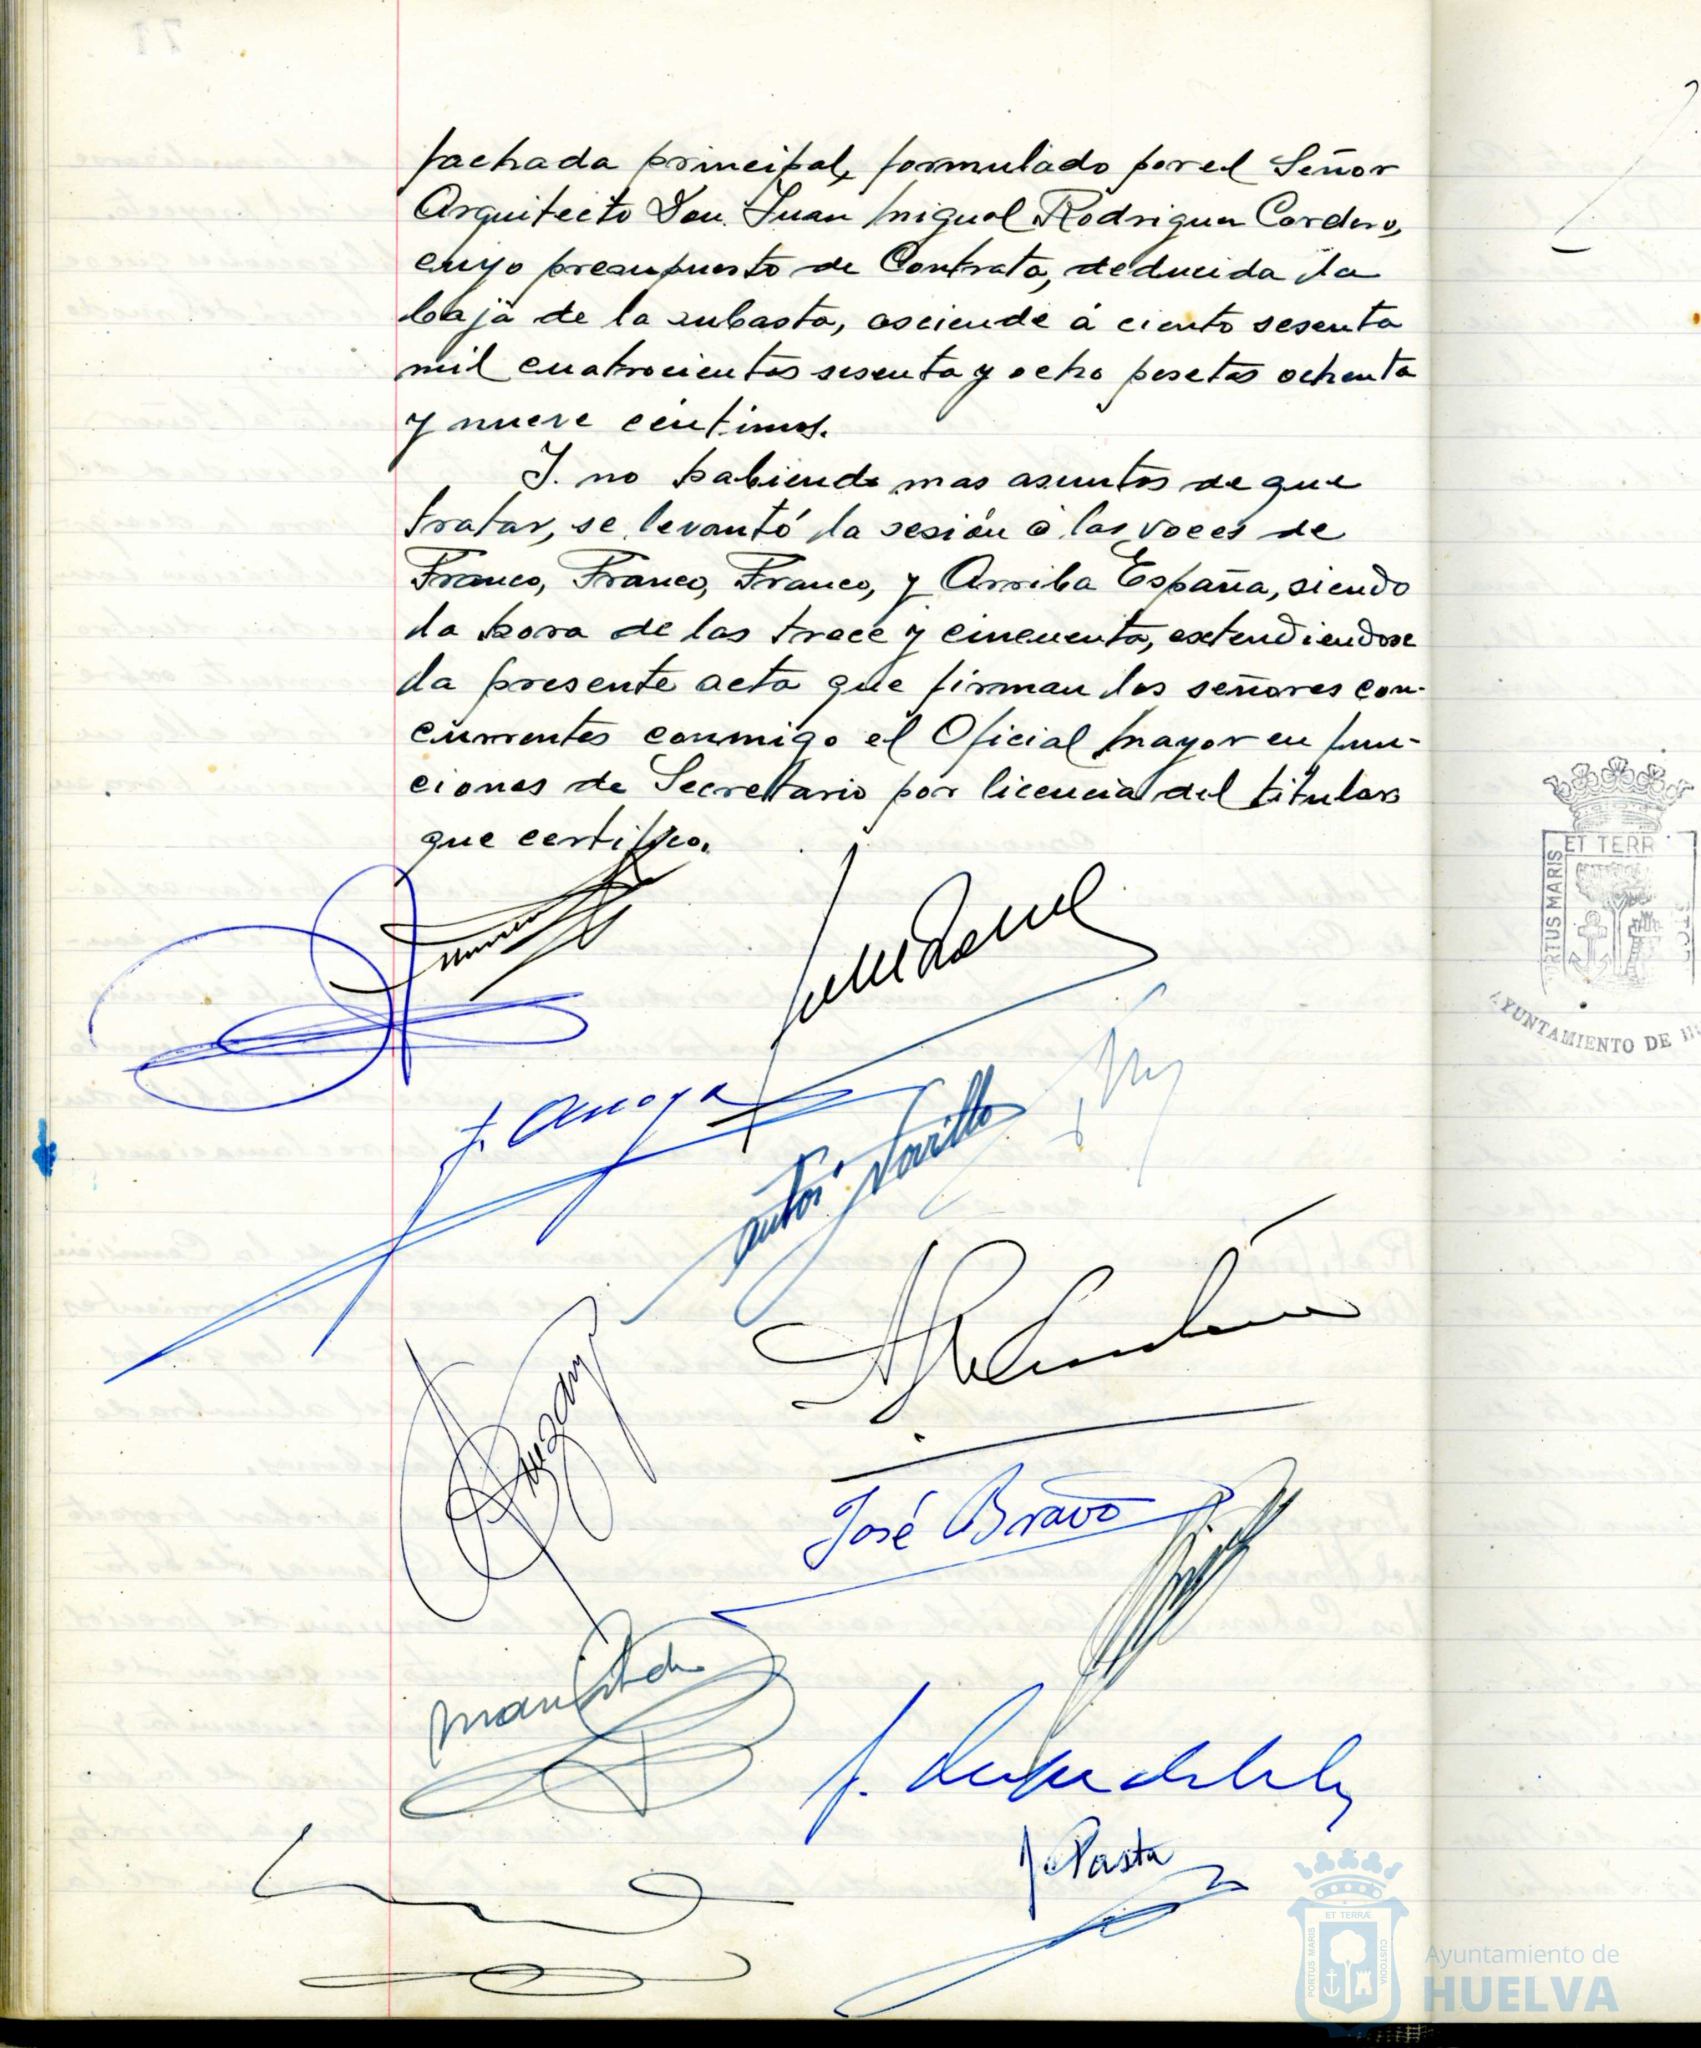 fachada principal, formulado por el Señor
Arquitecto Don Juan Miguel Rodriguez Cordero,
cuyo presupuesto de Contrata, deducida la
baja de la subasta, asciende á ciento sesenta
mil cuatrocientas sesenta y ocho pesetas ochenta
y nueve céntimos.
Y no habiendo mas asuntos de que
tratar, se levantó la sesión á las voces de
Franco, Franco, Franco, y Arriba España, siendo
la hora de las trece y cincuenta, extendiendose
la presente acta que firman los señores con-
currentes conmigo el Oficial Mayor en fun-
ciones de Secretario por licencia del titular
que certifico.
José Bravo
ET TERR
PORTUS MARIS
AYUNTAMIENTO DE H
ET TERRÆ
PORTUS MARIS
CUSTODIA
Ayuntamiento de
HUELVA